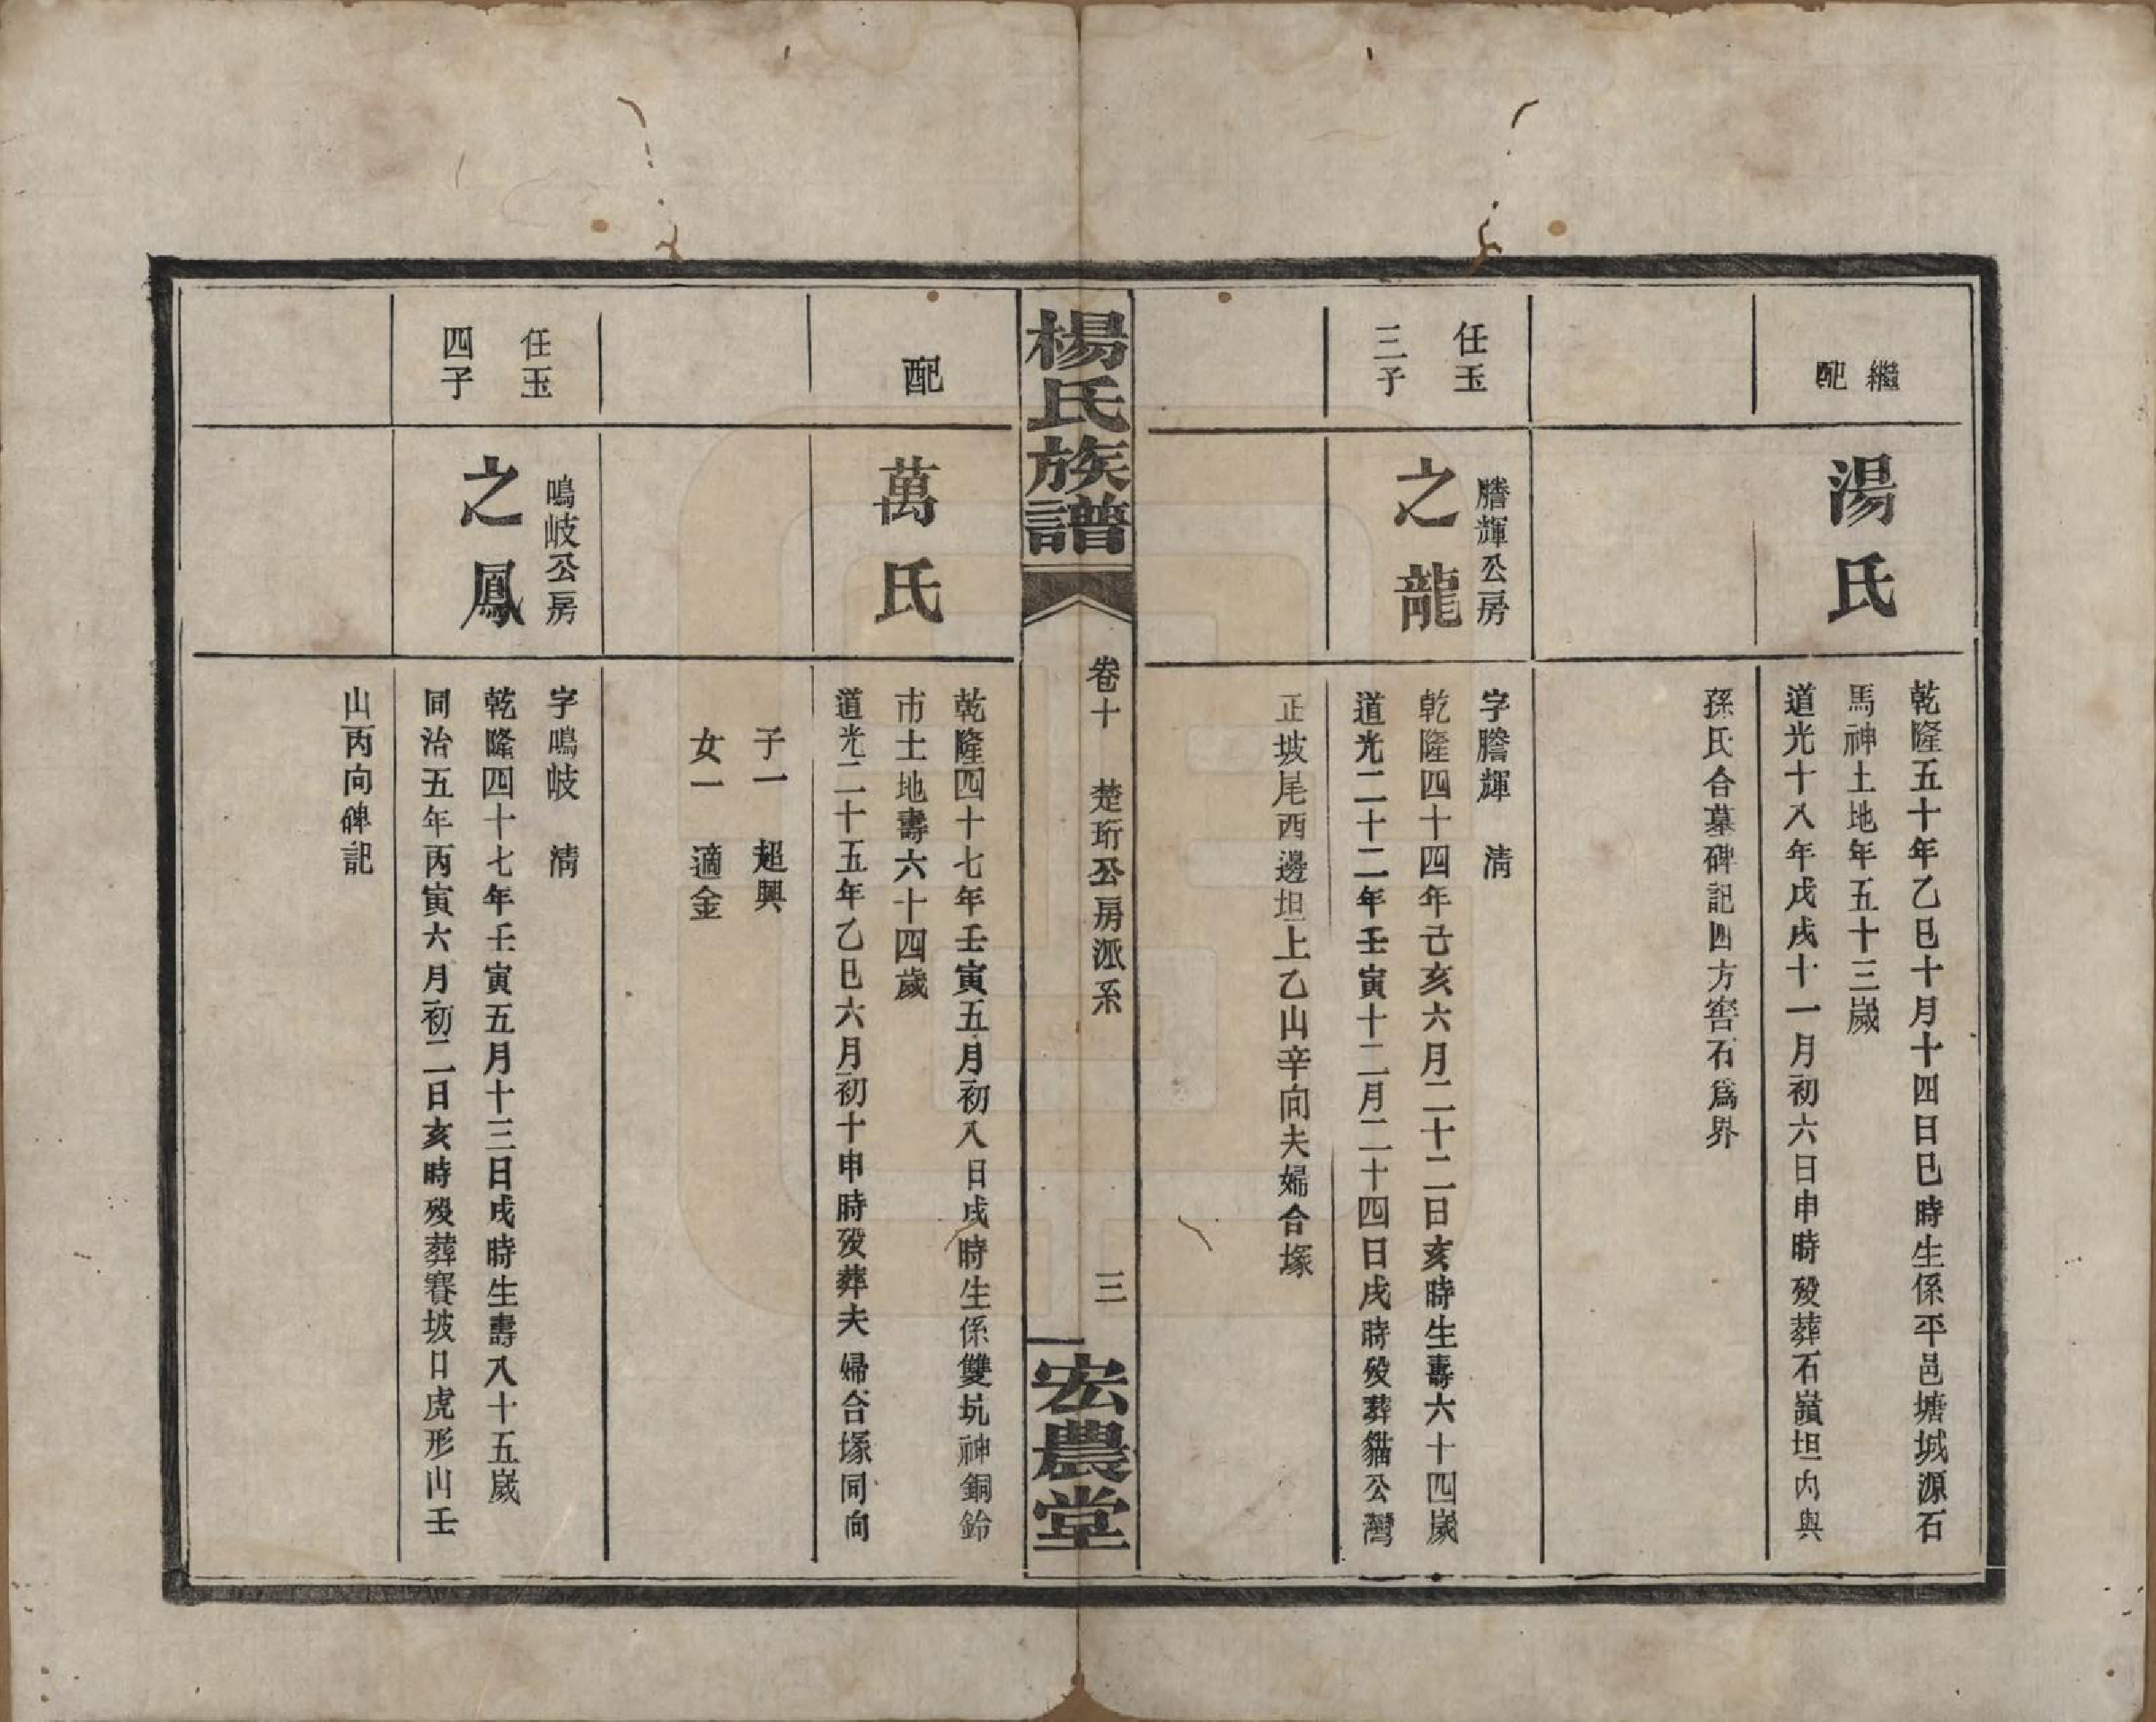 繼
配
湯氏
乾隆五十年乙巳十月十四日巳時生係平邑塘城源石
馬神土地年五十三嵗
道光十八年戊戌十一月初六日申時歿葬石嶺坦內與
孫氏合墓碑記四方窖石爲界
任玉
三子
謄輝公房
之龍
字謄輝 清
乾隆四十四年己亥六月二十二日亥時生壽六十四嵗
道光二十二年壬寅十二月二十四日戌時歿葬貓公灣
正坡尾西邊坦上乙山辛向夫婦合塚
楊氏族譜
卷十 楚珩公房派系
三
宏農堂
配
萬氏
乾隆四十七年壬寅五月初八日戌時生係雙坑神銅鈴
市土地壽六十四歲
道光二十五年乙巳六月初十申時歿葬夫婦合塚同向
子一 超興
女一 適金
任玉
四子
鳴岐公房
之鳳
字鳴岐 清
乾隆四十七年壬寅五月十三日戌時生壽八十五嵗
同治五年丙寅六月初二日亥時歿葬賽坡日虎形山壬
山丙向碑記